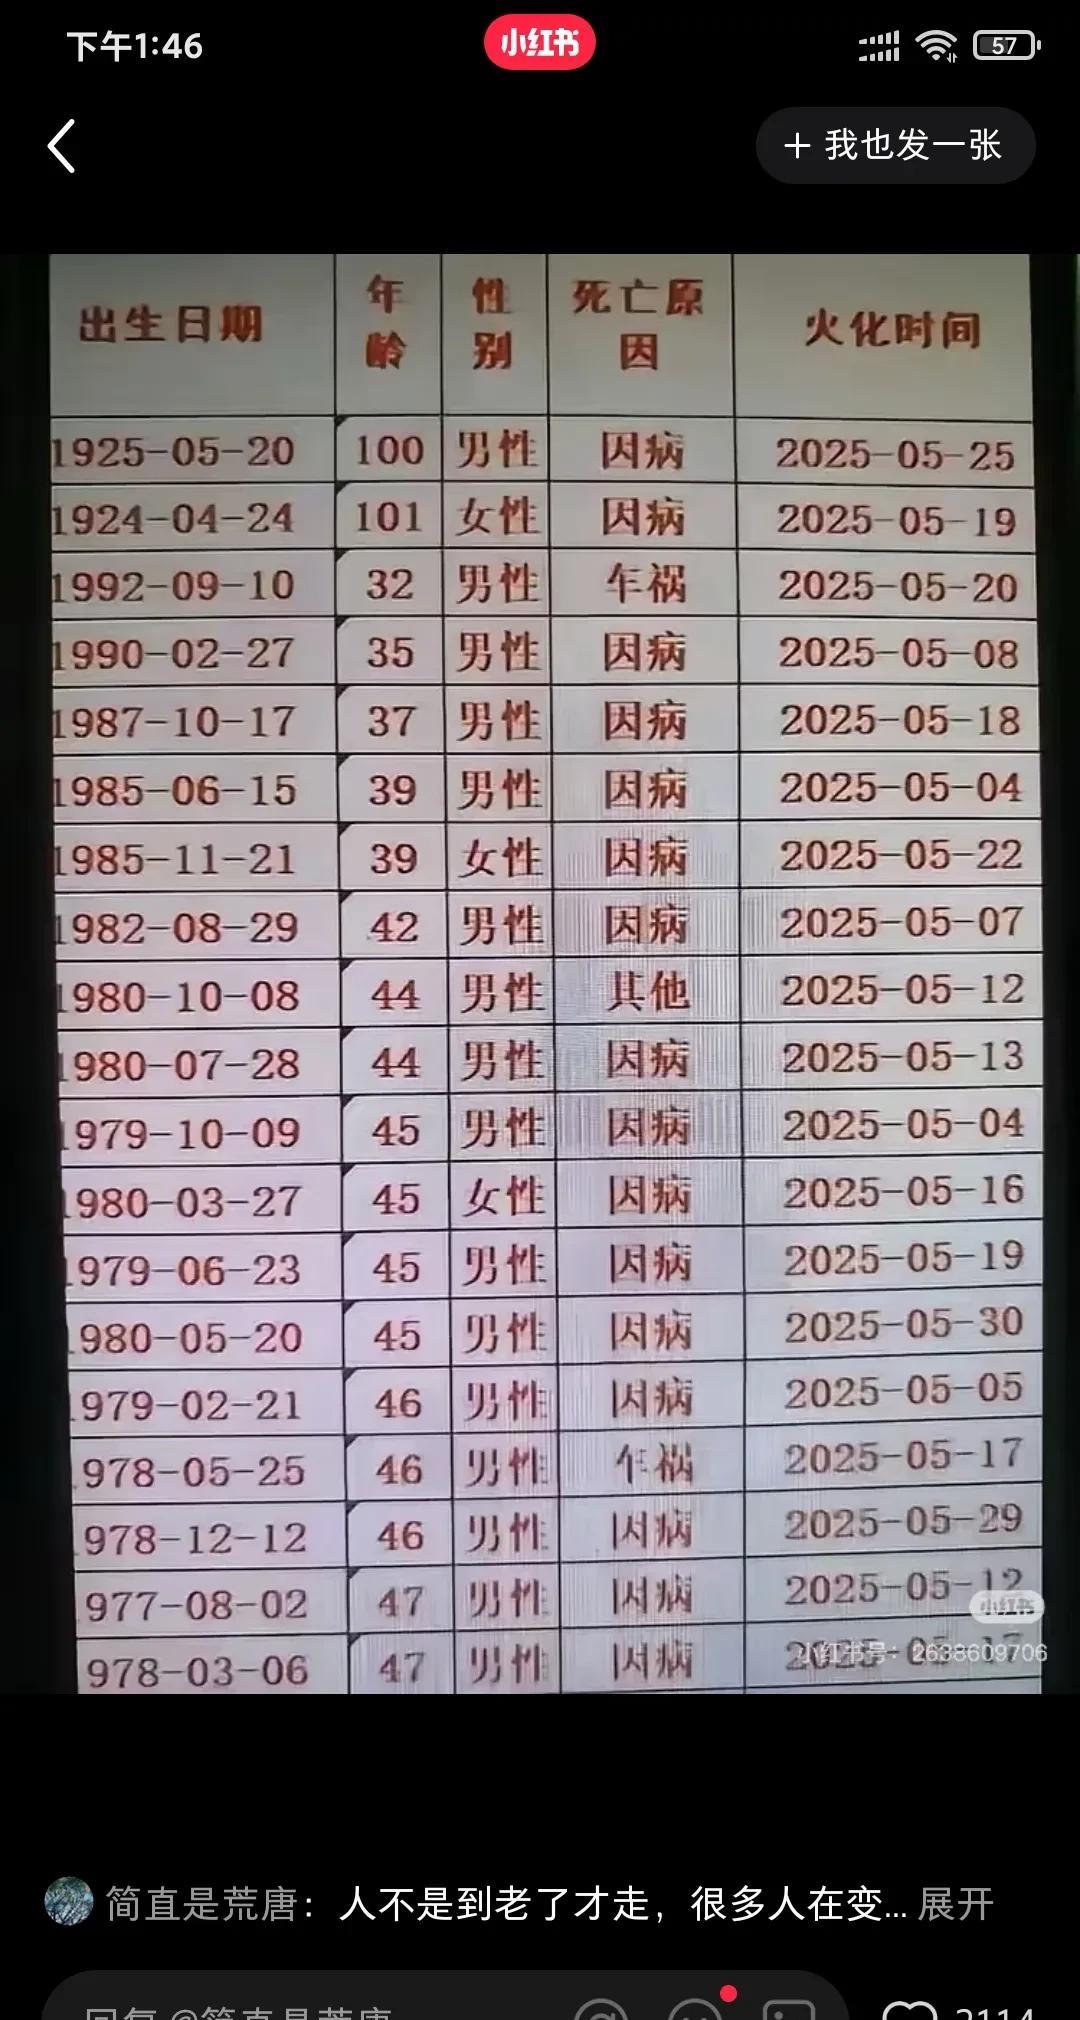 下午1:46
小红书
57
+ 我也发一张
出生日期 年龄 性别 死亡原因 火化时间
1925-05-20 100 男性 因病 2025-05-25
1924-04-24 101 女性 因病 2025-05-19
1992-09-10 32 男性 车祸 2025-05-20
1990-02-27 35 男性 因病 2025-05-08
1987-10-17 37 男性 因病 2025-05-18
1985-06-15 39 男性 因病 2025-05-04
1985-11-21 39 女性 因病 2025-05-22
1982-08-29 42 男性 因病 2025-05-07
1980-10-08 44 男性 其他 2025-05-12
1980-07-28 44 男性 因病 2025-05-13
1979-10-09 45 男性 因病 2025-05-04
1980-03-27 45 女性 因病 2025-05-16
1979-06-23 45 男性 因病 2025-05-19
1980-05-20 45 男性 因病 2025-05-30
979-02-21 46 男性 因病 2025-05-05
978-05-25 46 男性 车祸 2025-05-17
978-12-12 46 男性 因病 2025-05-29
977-08-02 47 男性 因病 2025-05-12
小红书
978-03-06 47 男性 因病 2025-05-17
小红书号：2638609706
简直是荒唐：人不是到老了才走，很多人在变... 展开
回复 @简直是荒唐
2114